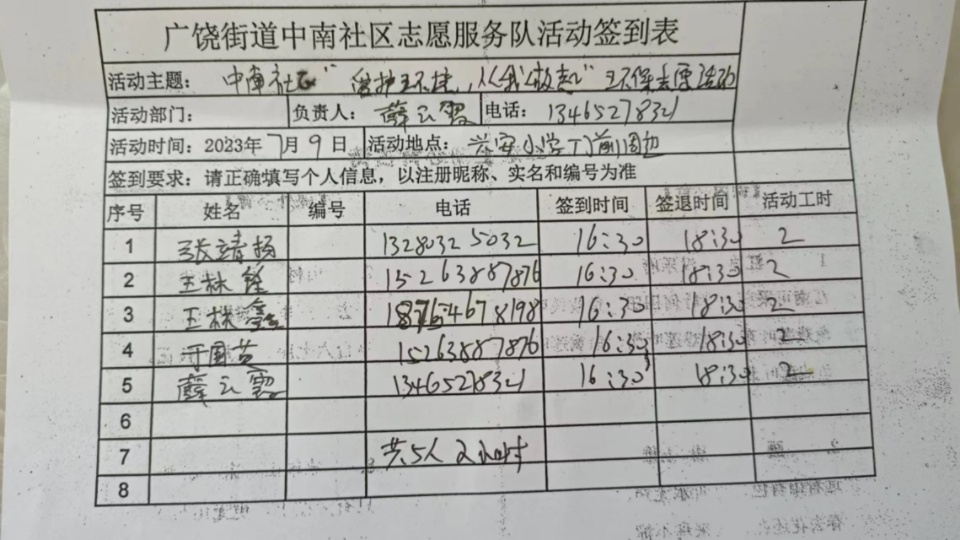 广饶街道中南社区志愿服务队活动签到表
活动主题： 中南社区"爱护环境，从我做起"环保志愿活动
活动部门： 负责人： 薛云霞 电话： 13465278321
活动时间：2023年7月9日 活动地点： 兴安小学门前周边
签到要求：请正确填写个人信息，以注册昵称、实名和编号为准
序号 姓名 编号 电话 签到时间 签退时间 活动工时
1 张靖扬 13280325032 16:30 18:30 2
2 王林 15263887876 16:30 18:30 2
3 王林鑫 18754678198 16:30 18:30 2
4 15263887876 16:30 18:30 2
5 薛云霞 13465278321 16:30 18:30 2
6
7 共5人 2小时
8